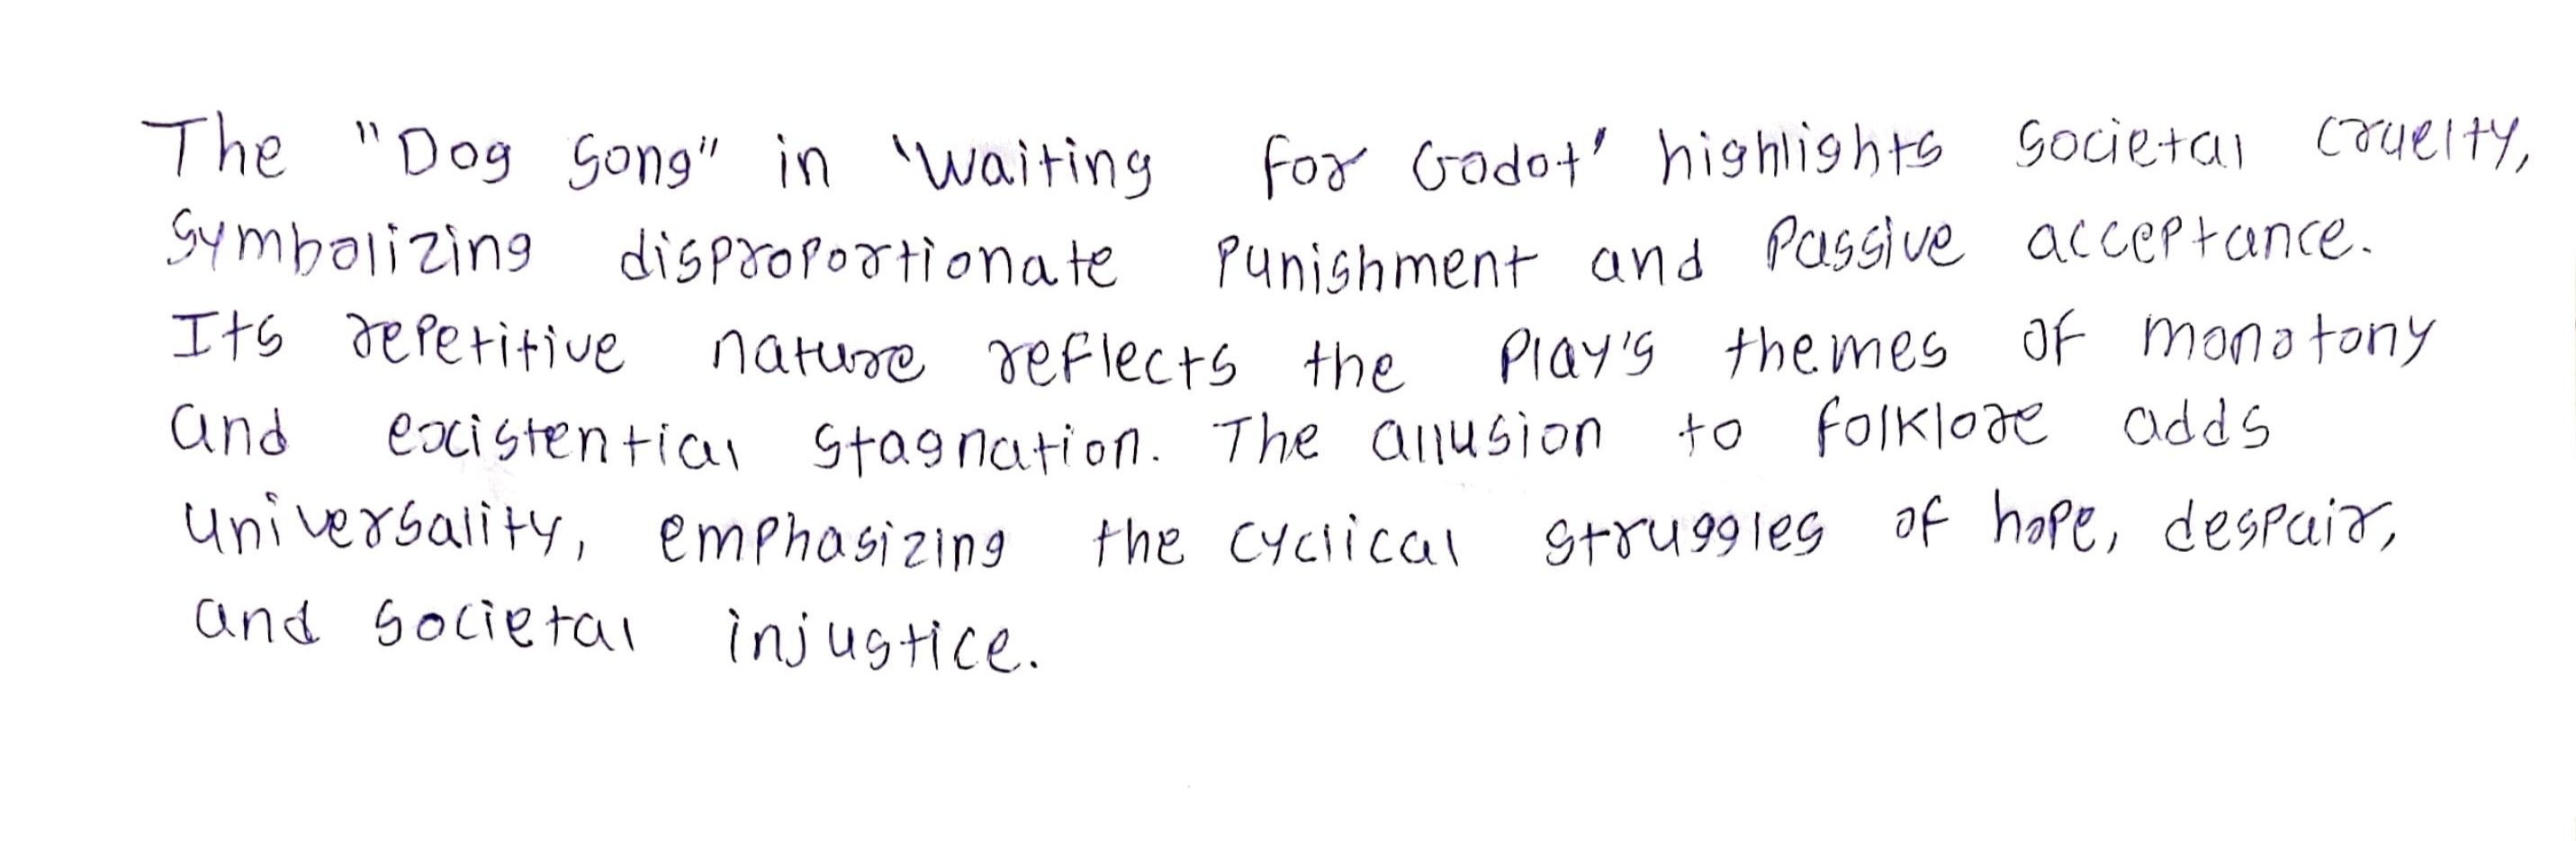 The "Dog Song" in 'Waiting for Godot' highlights societal cruelty,
symbolizing disproportionate punishment and passive acceptance.
Its repetitive nature reflects the play's themes of monotony
and existential stagnation. The allusion to folklore adds
universality, emphasizing the cyclical struggles of hope, despair,
and societal injustice.